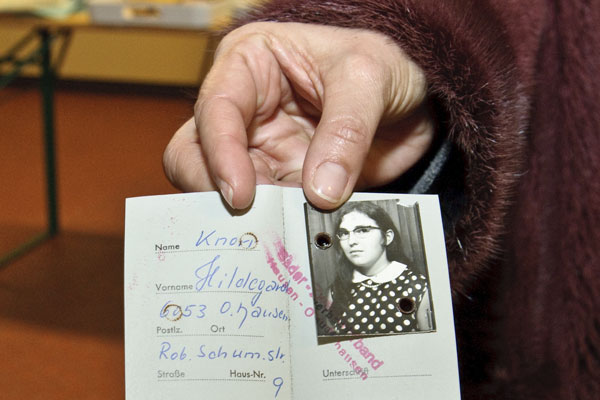 Name Knorr
Vorname Hildegard
6053 O.hausen
Postlz. Ort
Rob. Schum. str.
Straße Haus-Nr. 9
Unterschrift